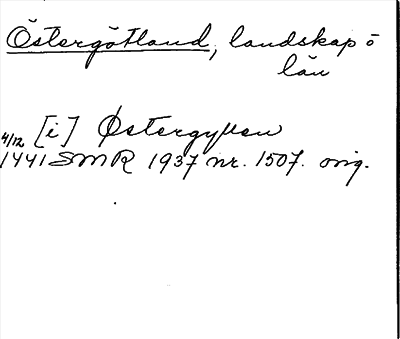 Östergötland, landskap o
län
4/12 [i] Østergyllen
1441 SMR 1937 nr. 1507. orig.